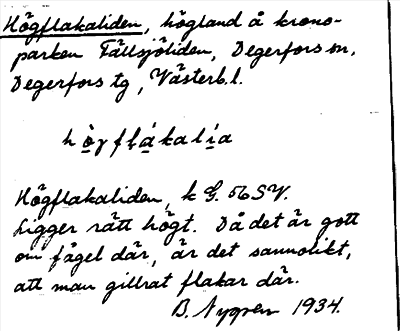 Högflakaliden, högland å krono-
parken Fällsjöliden, Degerfors sn,
Degerfors tg, Västerb. l.
hògflákalía
Högflakaliden, k G. 56 SV.
Ligger rätt högt. Då det är gott
om fågel där, är det sannolikt,
att man gillrat flakar där.
B. Nygren 1934.